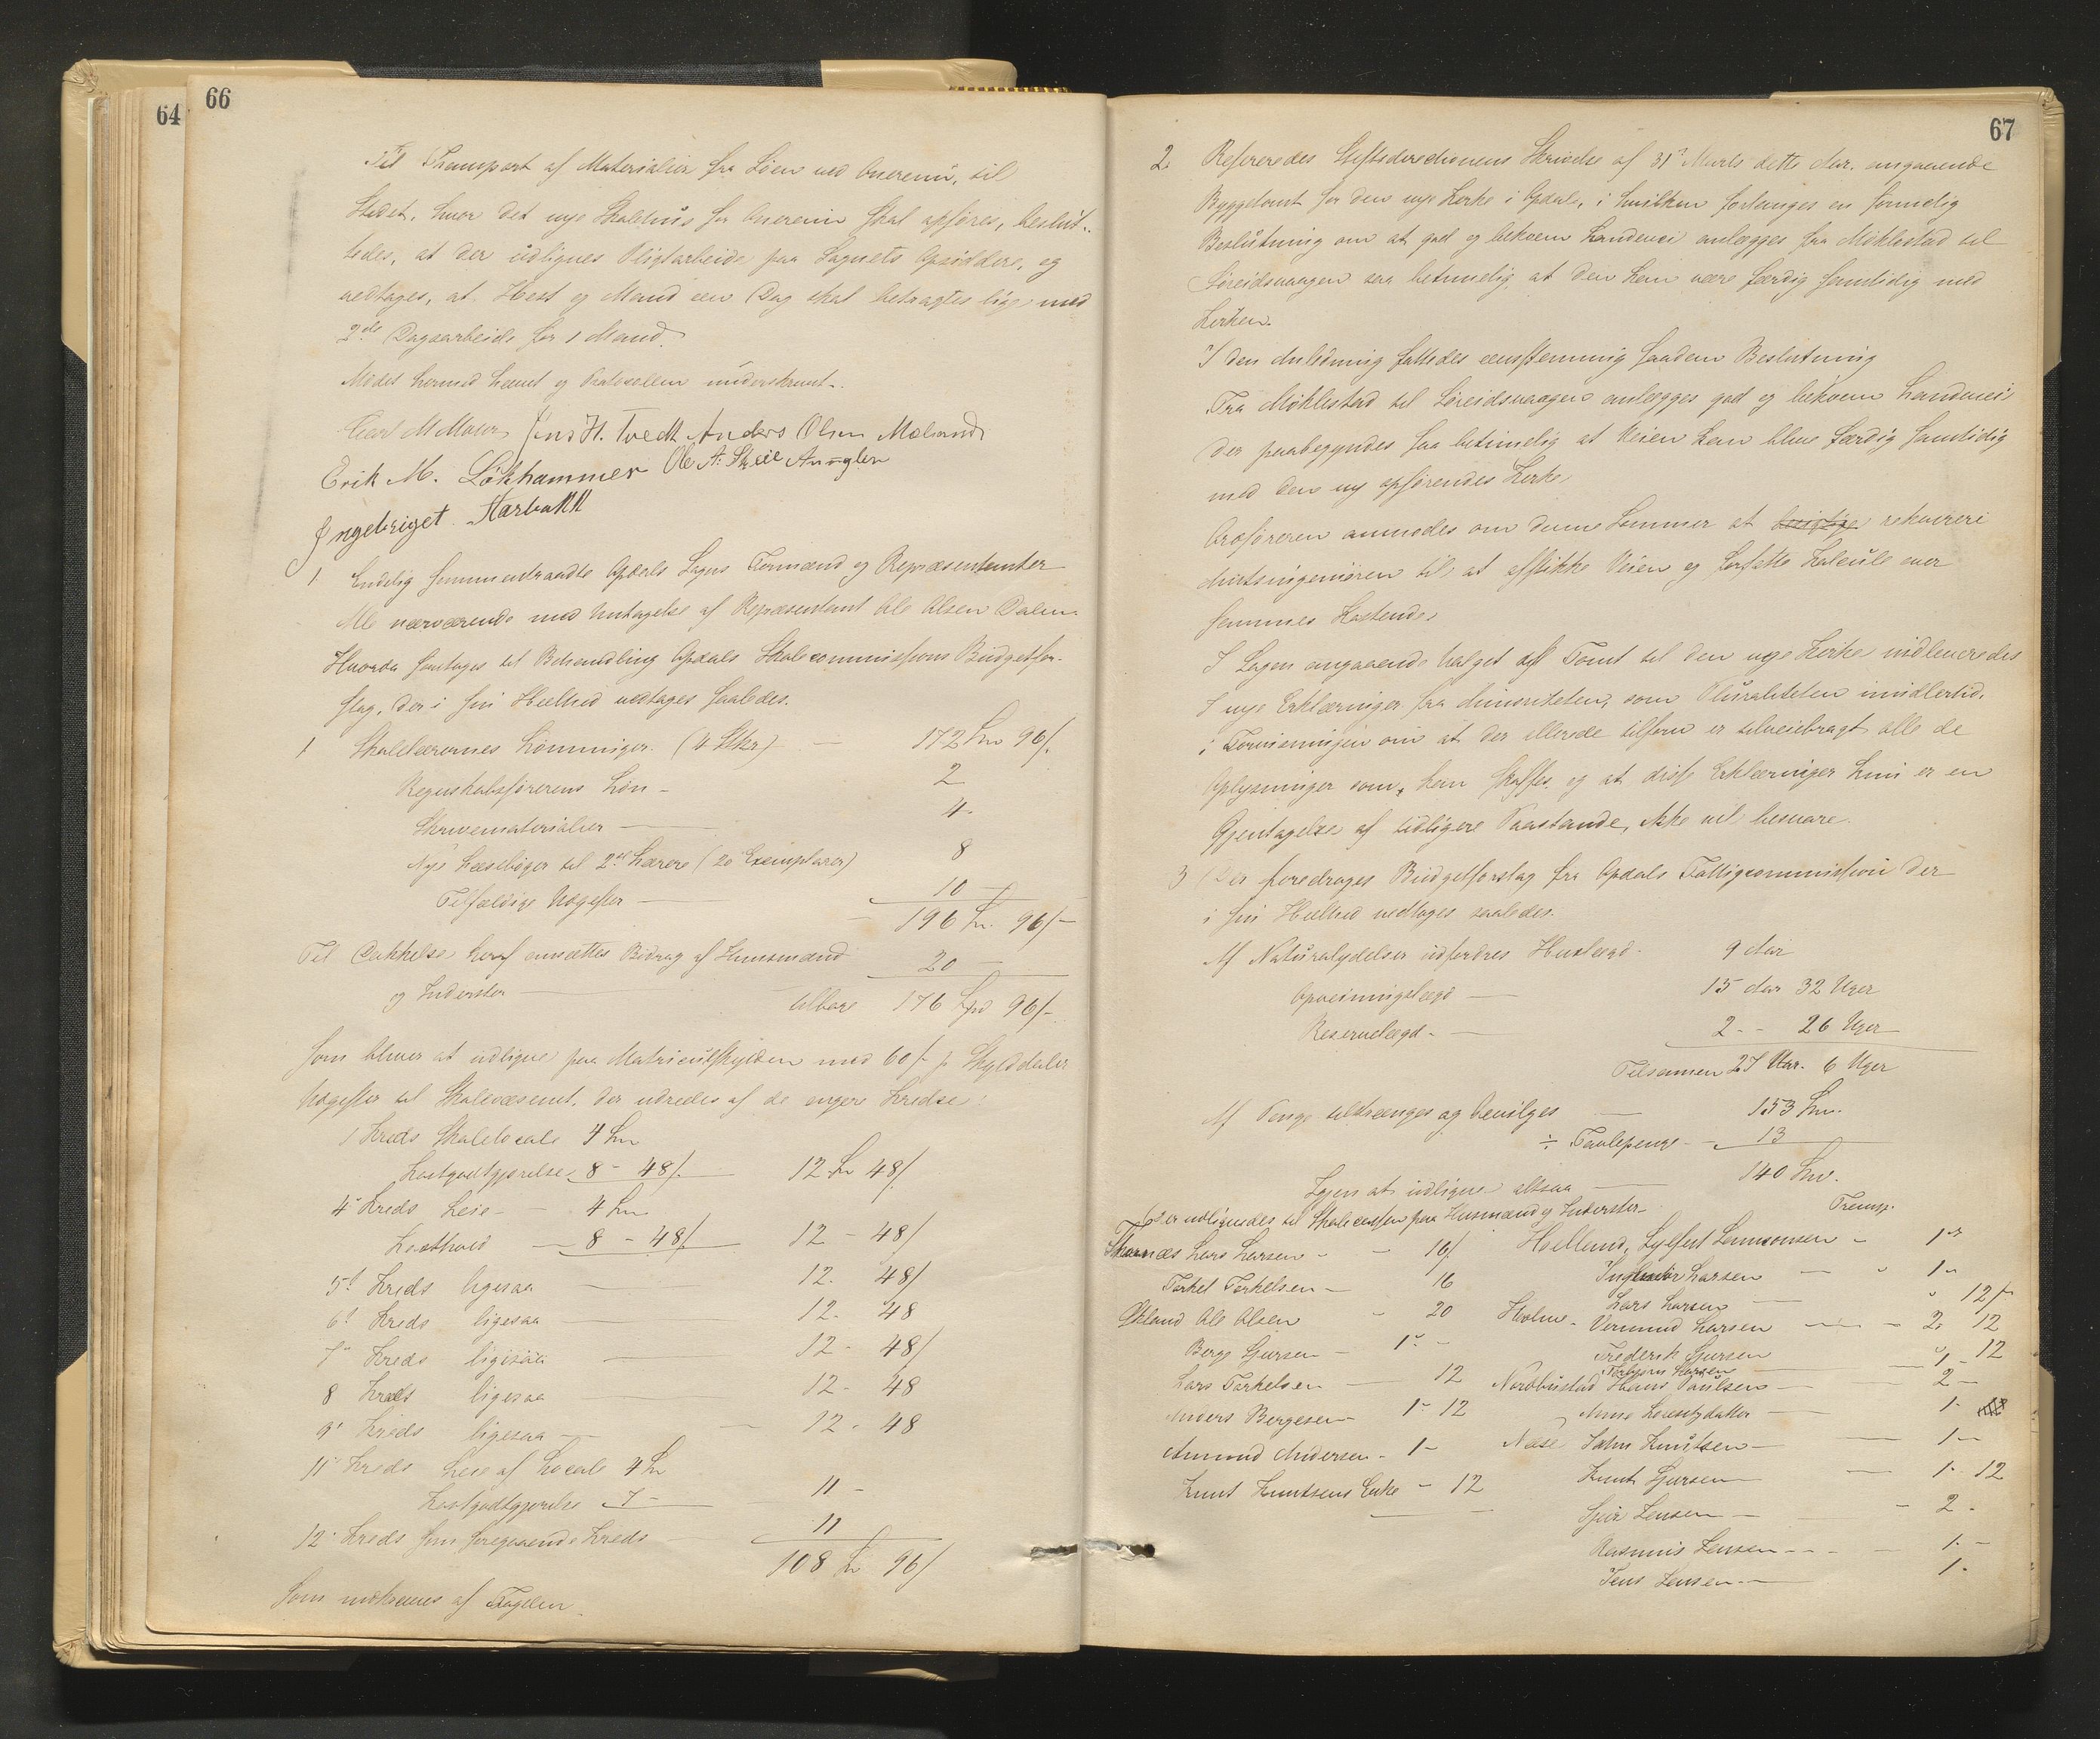 64
66
Til Transport af Materialier fra Søen ved Onereim, til
Stedet, hvor det nye Skolehus for Onereim skal opføres, beslut-
tedes, at der udlignes Pligtarbeide paa Sognets Opsiddere, og
vedtages, at Hest og Mand een Dag skal betragtes lige med
2de Dagsarbeide for 1 Mand.
Mødet hermed hævet og Protocollen underskrevet.
Jens H. Tvedt Anders Olsen Meland
Erik M. Løkhammer Ole A. Skeie
Ingebriget
1 Endelig sammentraadte Opdals Sogns Formænd og Repræsentanter
Alle nærværende med Undtagelse af Repræsentant Ole Olsen Dalen.
Hvorda foretoges til Behandling Opdals Skolecommissions Budgetfor-
slag, der i sin Helhed vedtages saaledes.
1 Skolelærernes Lønninger. (4 Stkr) — 172 Spd 96/.
Regnskabsførerens Løn - 2
Skrivematerialier — 4.
Nye Læsebøger til 2den Lærere (20 Exemplarer) 8
Tilfældige Udgifter — 10 —
196 Sp. 96/-
Til Dækkelse heraf ansættes Bidrag af Huusmænd
og Inderster — 20 —
tilbage 176 Spd 96/-
som bliver at udligne paa Matriculskylden med 60/- p Skylddaler
Udgifter til Skolevæsenet, der udredes af de engere Kredse:
1 Kreds Skolelocale 4 Spd
Kostgodtgjørelse 8 - 48/. 12 Sp 48/.
4de Kreds Leie - 4 Spd
Kosthold — 8 - 48/ 12 - 48/
5te Kreds ligesaa — 12. 48/
6te Kreds ligesaa — 12. 48
7de Kreds ligesaa — 12 - 48/
8 Kreds ligesaa — 12 - 48
9de Kreds ligesaa — 12 - 48
11te Kreds Leie af Locale 4 Sp
Kostgodtgjørelse 7 - 11 -
12te Kreds som foregaaende Kreds 11
108 Sp 96/
Som indkræves af Fogden.
67
2. Refereredes Stiftsdirectionens Skrivelse af 31te Marts dette Aar, angaaende
Byggetomt for den nye Kirke i Opdal, i hvilken forlanges en formelig
Beslutning om at god og bekvem Landevei anlægges fra Møklestad til
Søreidsvaagen saa betimelig at den kan være færdig samtidig med
Kirken.
I den Anledning fattedes eenstemmig saadan Beslutning
Fra Møklestad til Søreidsvaagen anlægges god og bekvem Landevei
der paabegyndes saa betimelig at Veien kan blive færdig samtidig
med den ny opførendes Kirke
Ordføreren anmodes om denne Sommer at rekvirere
Amtsingeniøren til at afstikke Veien og forfatte Kalcule over
sammes Kostende
I Sagen angaaende Valget af Tomt til den nye Kirke indleveredes
7 nye Erklæringer fra Minoriteten, som Pluraliteten imidlertid,
i Formeningen om at der allerede tilforn er tilveiebragt alle de
Oplysninger som kan skaffes og at disse Erklæringer kun er en
Gjentagelse af tidligere Paastande, ikke vil besvare.
3 Der foredroges Budgetforslag fra Opdals Fattigcommission der
i sin Helhed vedtages saaledes.
Af Naturalydelser udfordres Huslægd. 9 Aar
Opveiningslægd — 15 Aar 32 Uger
Reservelægd. — 2 - - 26 Uger
Tilsammen 27 Aar. 6 Uger
Af Penge tiltrænges og bevilges — 153 Spd.
÷ Tavlepenge - 13
Igjen at udligne altsaa — 140 Spd.
Der udlignedes til Skolecassen paa Husmænd og Inderster. Transp.
Skarnæs Lars Larsen - - 16/.
Torkel Torkelsen — 16
Økland Ole Olsen - 20
Berge Gjursen — 1 -
Lars Torkelsen — 12
Anders Bergesen — 1 - 12
Amund Andersen - 1 -
Knut Knutsens Enke - 12
Helland, 1 -
Larsen — 1 -
Lars Larsen — 12/-
Holm - Vermund Larsen — 2. 12
Frederik Gjursen 12
Torbjørn Hansen 1 -
Nordhustad Hans Paulsen — 2 -
Anne — 1 -
Næse John Knutsen — 1 -
Knut Gjursen — 1 - 12
Gjur Jensen — 2 -
Rasmus Jensen — 1 -
Jens Jensen — 1 -